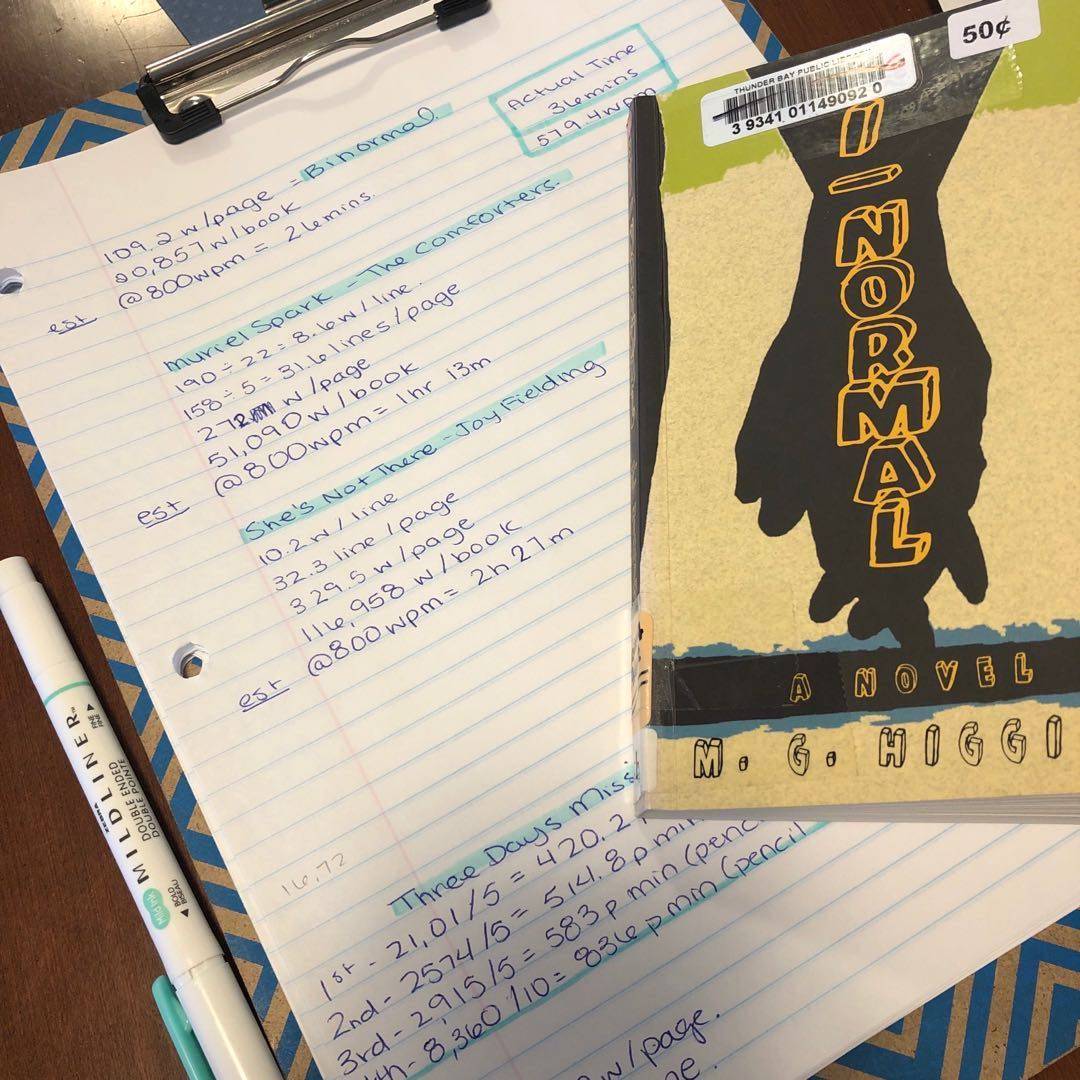 Actual Time
36mins
579.4wpm
109.2 w/page = Binormal.
20,857 w/book
est @800wpm = 26mins.
Muriel Spark - The Comforters.
190 ÷ 22 = 8.6 w/line.
158 ÷ 5 = 31.6 lines/page
272 w/page
51,090 w/book
est @800wpm = 1hr 13m
She's Not There - Joy Fielding
10.2 w/line
32.3 line/page
329.5 w/page
116,958 w/book
est @800wpm = 2h 27m
16,72
Three Days Missi
1st - 21,01/5 = 420.2
2nd - 2574/5 = 514.8 p min
3rd - 2,915/5 = 583 p min (penc
4th - 8,360/10 = 836 p min (pencil
w/page.
ne.
50¢
THUNDER BAY PUBLIC LIBRARY
3 9341 01149092 0
I-NORMAL
A NOVEL
M. G. HIGGI
ZEBRA
MILDLINER™
DOUBLE ENDED
DOUBLE POINTE
FINE
FINE
Mild Ink
BOLD
BISEAU